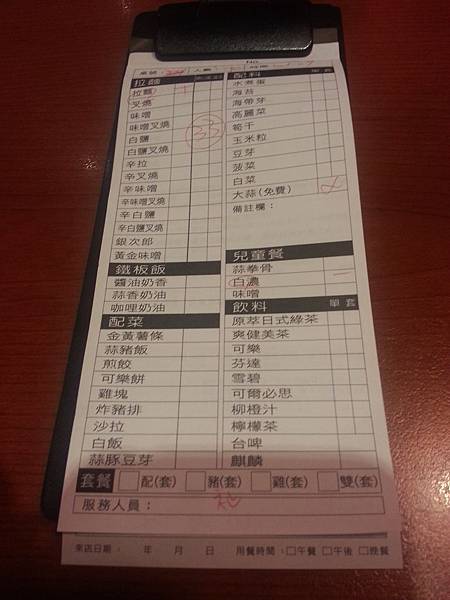 No.
桌號： 人數： 時間：
拉麵
拉麵
叉燒
味噌
味噌叉燒
白鹽
白鹽叉燒
辛拉
辛叉燒
辛味噌
辛味噌叉燒
辛白鹽
辛白鹽叉燒
銀次郎
黃金味噌
33
鐵板飯
醬油奶香
蒜香奶油
咖哩奶油
配菜
金黃薯條
蒜豬飯
煎餃
可樂餅
雞塊
炸豬排
沙拉
白飯
蒜豚豆芽
配料 單 套
水煮蛋
海苔
海帶芽
高麗菜
筍干
玉米粒
豆芽
菠菜
白菜
大蒜(免費)
備註欄：
兒童餐
蒜拳骨
白濃
味噌
飲料 單 套
原萃日式綠茶
爽健美茶
可樂
芬達
雪碧
可爾必思
柳橙汁
檸檬茶
台啤
麒麟
套餐 □配(套) □豬(套) □雞(套) □雙(套)
服務人員：
來店日期： 年 月 日 用餐時間：□午餐 □午後 □晚餐